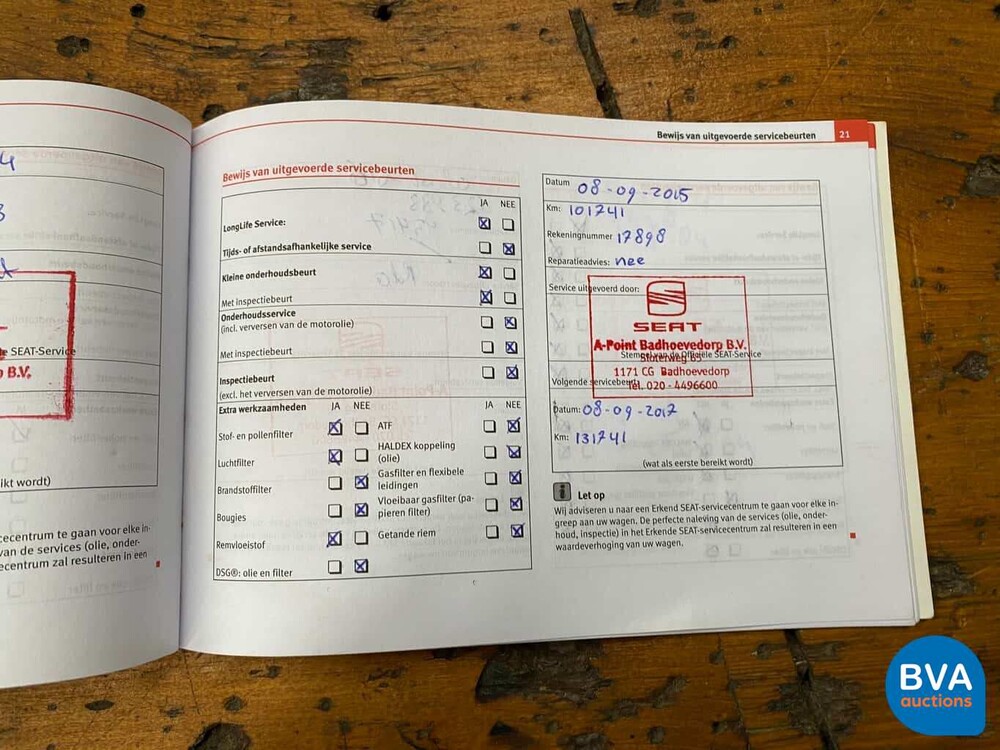 Bewijs van uitgevoerde servicebeurten 21
4
3
e SEAT-Service
p B.V.
ikt wordt)
cecentrum te gaan voor elke in-
van de services (olie, onder-
cecentrum zal resulteren in een
Bewijs van uitgevoerde servicebeurten
JA NEE
LongLife Service:
Tijds- of afstandsafhankelijke service
Kleine onderhoudsbeurt
Met inspectiebeurt
Onderhoudsservice
(incl. verversen van de motorolie)
Met inspectiebeurt
Inspectiebeurt
(excl. het verversen van de motorolie)
Extra werkzaamheden JA NEE JA NEE
Stof- en pollenfilter
Luchtfilter
Brandstoffilter
Bougies
Remvloeistof
DSG®: olie en filter
ATF
HALDEX koppeling
(olie)
Gasfilter en flexibele
leidingen
Vloeibaar gasfilter (pa-
pieren filter)
Getande riem
Datum 08-09-2015
Km: 101741
Rekeningnummer 17898
Reparatieadvies: nee
Service uitgevoerd door:
SEAT
A-Point Badhoevedorp B.V.
Sloterweg 65
Stempel van de Officiële SEAT-Service
1171 CG Badhoevedorp
Tel. 020 - 4496600
Volgende servicebeurt
Datum: 08-09-2017
Km: 131741
(wat als eerste bereikt wordt)
i Let op
Wij adviseren u naar een Erkend SEAT-servicecentrum te gaan voor elke in-
greep aan uw wagen. De perfecte naleving van de services (olie, onder-
houd, inspectie) in het Erkende SEAT-servicecentrum zal resulteren in een
waardeverhoging van uw wagen.
BVA
auctions